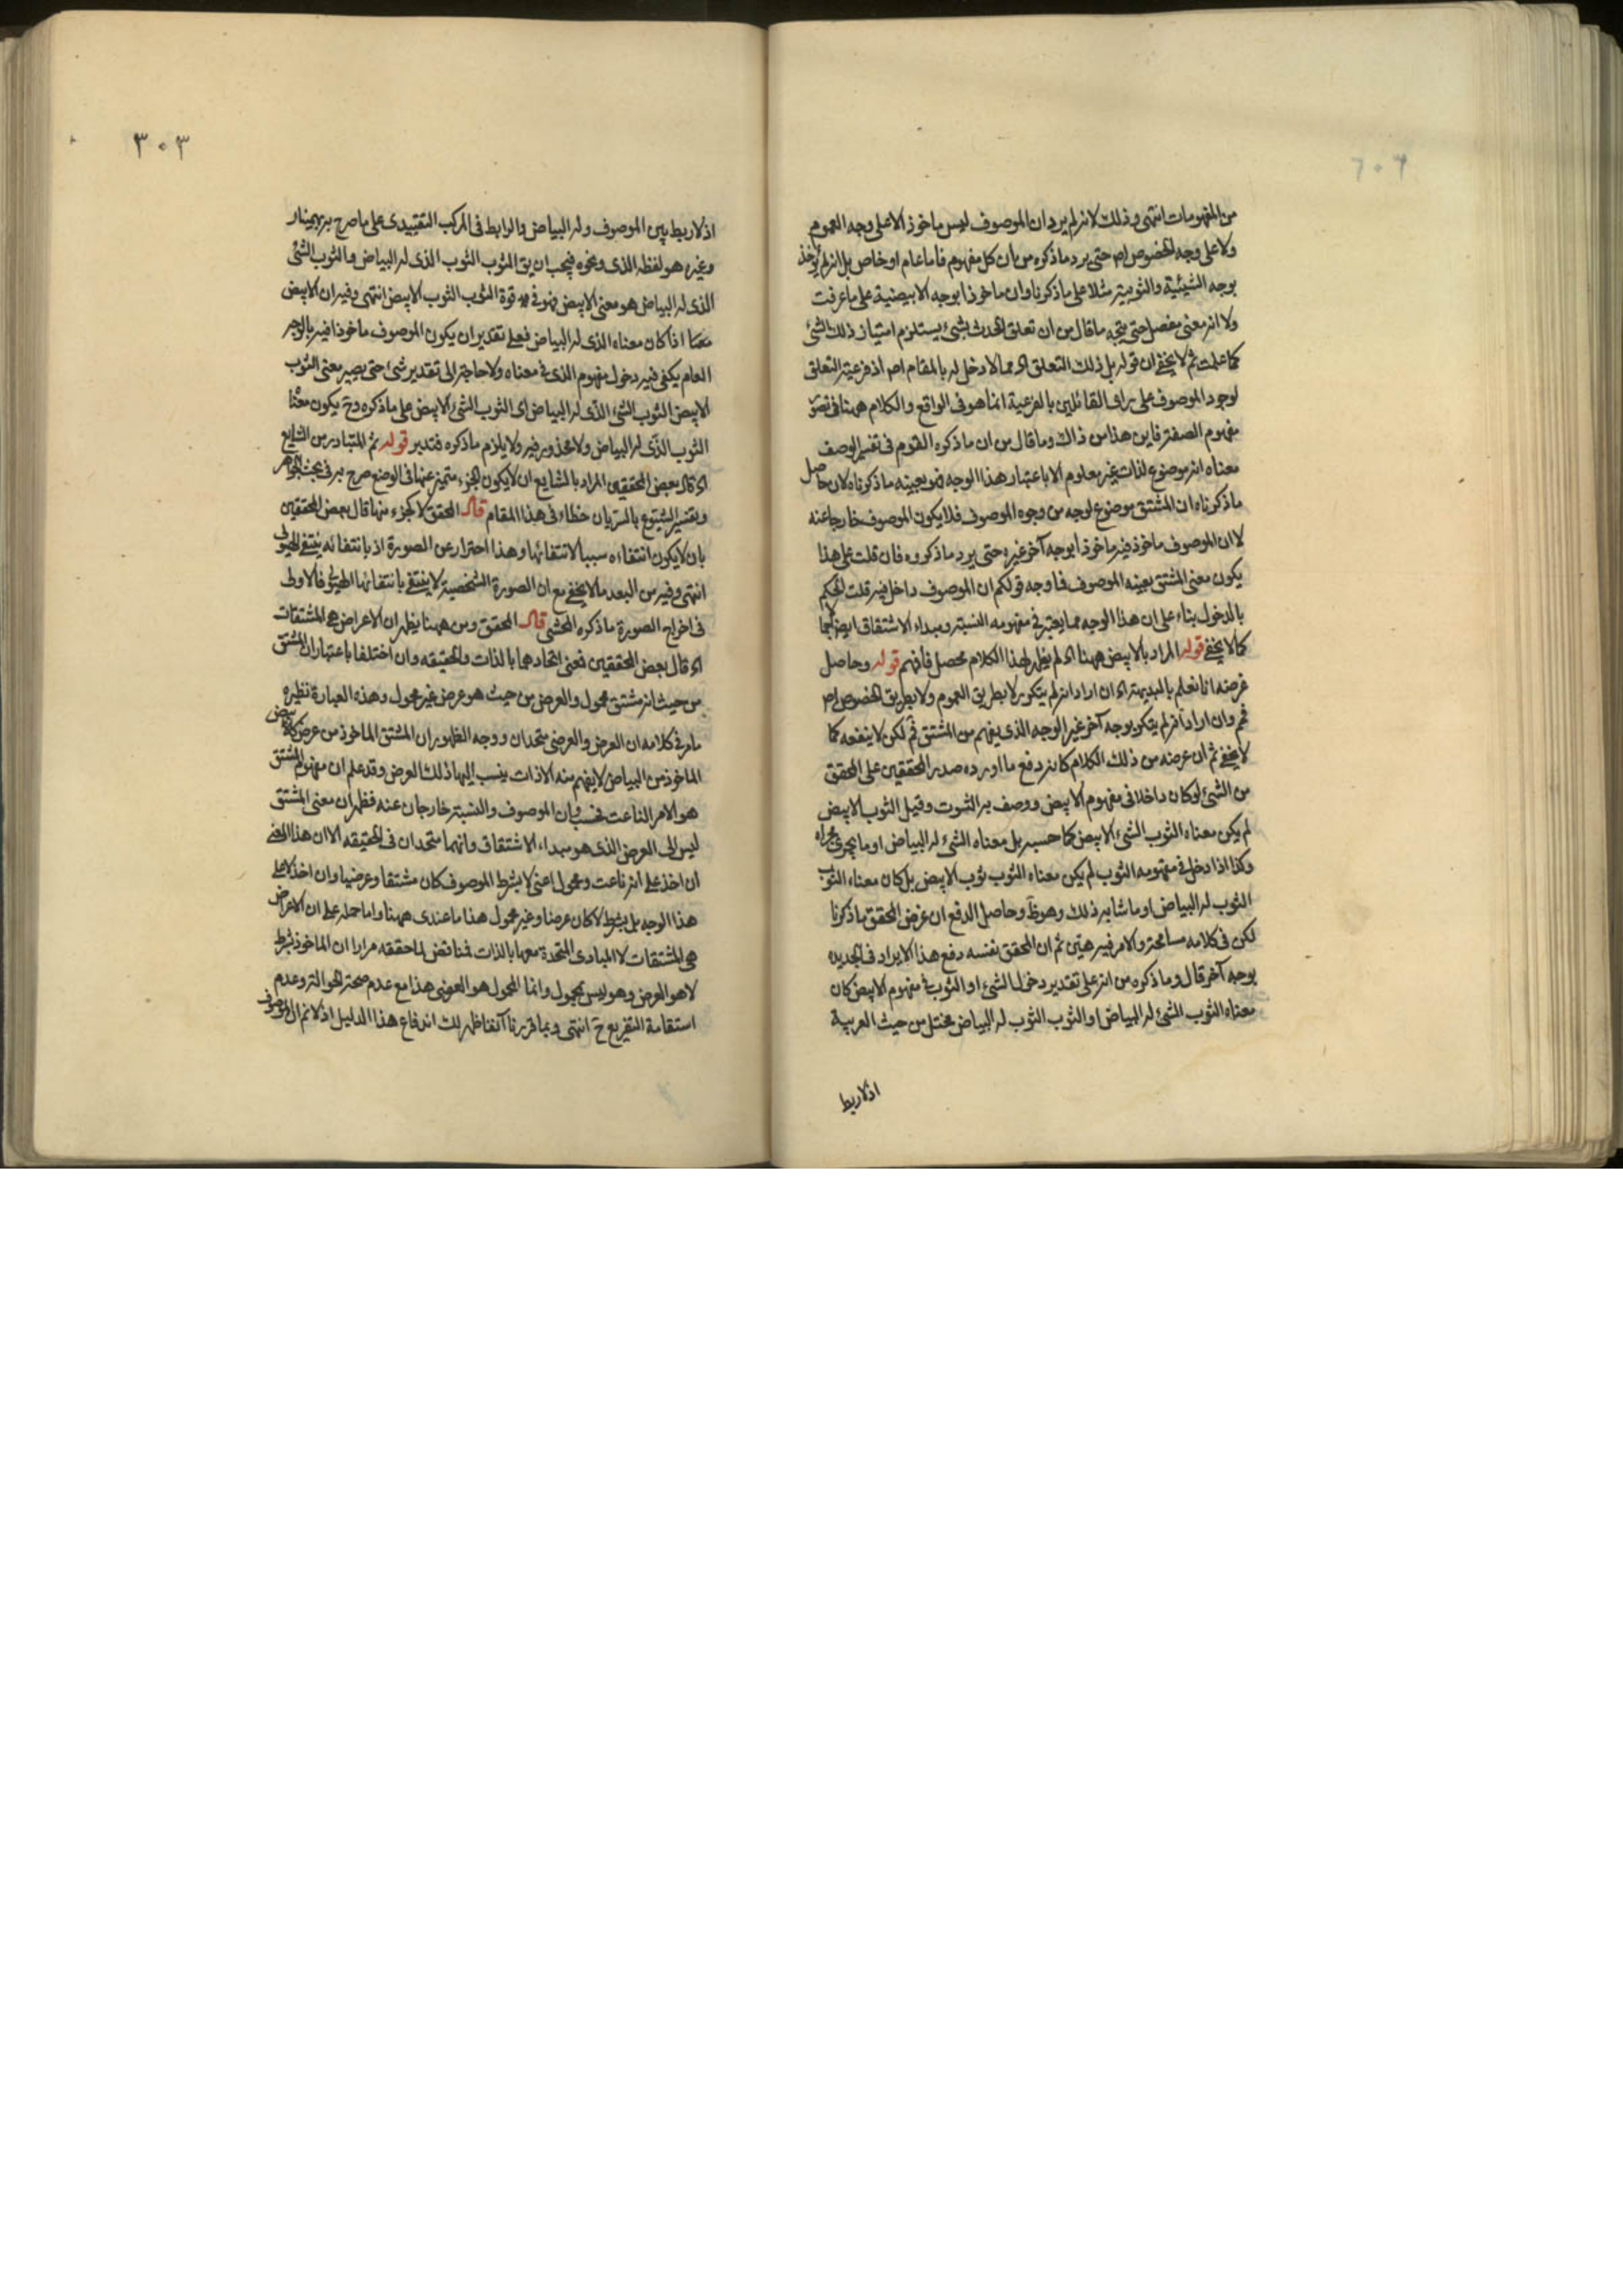 من المفهومات انتهى وذلك لانه لم يرد ان الموصوف ليس ماخوذ الا على وجه العموم
ولا على وجه الخصوص اصر حتى يرد ما ذكره من ان كل مفهوم فاما عام او خاص بل انه لم يؤخذ
بوجه الشيئية والثوبية مثلا على ما ذكرنا وان ماخوذا بوجه الابيضية على ما عرفت
ولا انه معنى مفصل حتى يتجه ما قال من ان تعلق الحدث بشئ يستلزم امتياز ذلك الشئ
كما علمت ثم لا يخفى ان قوله بل ذلك التعلق اه مما لا دخل له بالمقام اصر اذ فرعية التعلق
لوجود الموصوف على راى القائلين بالفرعية انما هو فى الواقع والكلام ههنا فى تصور
مفهوم الصفة فاين هذا من ذاك وما قال من ان ما ذكره القوم فى تفسير الوصف
معناه انه موضوع لذات غير معلوم الا باعتبار هذا الوجه فهو بعينه ما ذكرناه لان حاصل
ما ذكرناه ان المشتق موضوع لوجه من وجوه الموصوف فلا يكون الموصوف خارجا عنه
لا ان الموصوف ماخوذ فيه ماخوذا بوجه آخر غيره حتى يرد ما ذكروه فان قلت على هذا
يكون معنى المشتق بعينه الموصوف فما وجه قولكم ان الموصوف داخل فيه قلت الحكم
بالدخول بناء على ان هذا الوجه مما يعتبر فى مفهومه النسبة ومبداء الاشتقاق ايض
كما لا يخفى قوله المراد بالابيض ههنا اه لم يظهر لهذا الكلام محصل فافهم قوله وحاصل
غرضه انا نعلم بالبديهة اه ان اراد انه لم يتكرر لا بطريق العموم ولا بطريق الخصوص اصر
فم وان اراد انه لم يتكرر بوجه آخر غير الوجه الذى يفهم من المشتق فم لكن لا ينفعه كما
لا يخفى ثم ان غرضه من ذلك الكلام كانه دفع ما اورده صدر المحققين على المحقق
من الشئ لو كان داخلا فى مفهوم الابيض ووصف به الثوب وقيل الثوب الابيض
لم يكن معناه الثوب الشئ الابيض كما حسبه بل معناه الشئ له البياض او ما يجرى مجراه
وكذا اذا دخل فى مفهومه الثوب لم يكن معناه الثوب ثوب الابيض بل كان معناه الثوب
الثوب له البياض او ما شابه ذلك وهو ظ وحاصل الدفع ان غرض المحقق ما ذكرنا
لكن فى كلامه مسامحة والامر فيه هين ثم ان المحقق بنفسه دفع هذا الايراد فى الجديدة
بوجه آخر قال وما ذكره من انه على تقدير دخول الشئ او الثوب فى مفهوم الابيض كان
معناه الثوب الشئ له البياض او الثوب الثوب له البياض مختل من حيث العربية
اذ لا ربط
٣٠٣
اذ لا ربط بين الموصوف وله البياض والرابط فى المركب التقييدى على ما صرح به بهمنيار
وغيره هو لفظه الذى ونحوه فيجب ان يق الثوب الثوب الذى له البياض والثوب الشئ
الذى له البياض هو معنى الابيض فهو فى قوة الثوب الثوب الابيض انتهى وفيه ان الابيض
اذا كان معناه الذى له البياض فعلى تقدير ان يكون الموصوف ماخوذا فيه بالوجه
العام يكفى فيه دخول مفهوم الذى فى معناه ولا حاجة الى تقدير شئ حتى يصير معنى الثوب
الابيض الثوب الشئ الذى له البياض اى الثوب الشئ الابيض على ما ذكره وح يكون معنا
الثوب الذى له البياض ولا محذور فيه ولا يلزم ما ذكره فتدبر قوله ثم المتبادر من الشايع
اه قال بعض المحققين المراد بالشايع ان لا يكون الجزء متميزا عنها فى الوضع صرح به فى بحث الجواهر
وتفسير الشيوع بالسريان خطاء فى هذا المقام قال المحقق لا كجزء منها قال بعض المحققين
بان لا يكون انتفاءه سببا لانتفائها وهذا احتراز عن الصورة اذ بانتفائه ينتفى الهيولى
انتهى وفيه من البعد ما لا يخفى مع ان الصورة الشخصية لا ينتفى بانتفائها الهيولى فالاولى
فى اخراج الصورة ما ذكره المحشى قال المحقق ومن ههنا يظهر ان الاعراض هى المشتقات
اه قال بعض المحققين فمعنى اتحادهما بالذات والحقيقه وان اختلفا باعتبار ان المشتق
من حيث انه مشتق محمول والعرض من حيث هو عرض غير محمول وهذه العبارة نظيره
مامر فى كلامه ان العرض والعرضى متحدان ووجه الظهور ان المشتق الماخوذ من عرض كالابيض
الماخوذ من البياض لا يفهم منه الا ذات ينسب اليها ذلك العرض وقد علم ان مفهوم المشتق
هو الامر الناعت فحسب وان الموصوف والنسبة خارجان عنه فظهر ان معنى المشتق
ليس الى العرض الذى هو مبداء الاشتقاق وانهما متحدان فى الحقيقه الا ان هذا المعنى
ان اخذ على انه ناعت ومحمول اعنى لا بشرط الموصوف كان مشتقا وعرضيا وان اخذ لا على
هذا الوجه بل بشرط لا كان عرضا وغير محمول هذا ما عندى ههنا واما حمله على ان الاعراض
هى المشتقات لا المبادى المتحدة معها بالذات فمناقض لما حققه مرارا ان الماخوذ بشرط
لا هو العرض وهو ليس بمحمول وانما المحمول هو العرضى هذا مع عدم صحة الحوالة وعدم
استقامة التفريع ح انتهى وبما قررنا آنفا ظهر لك اندفاع هذا الدليل اذ لا نم ان الموصوف